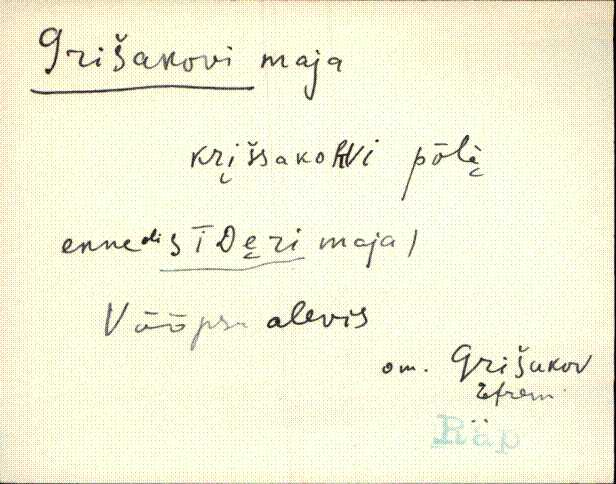 Grišakovi maja
kri̮šsakoHvi pōlè̮
enne di sīDe̮ri maja)
Vööpsu alevis
om. Grišakov
Efrem.
Räp